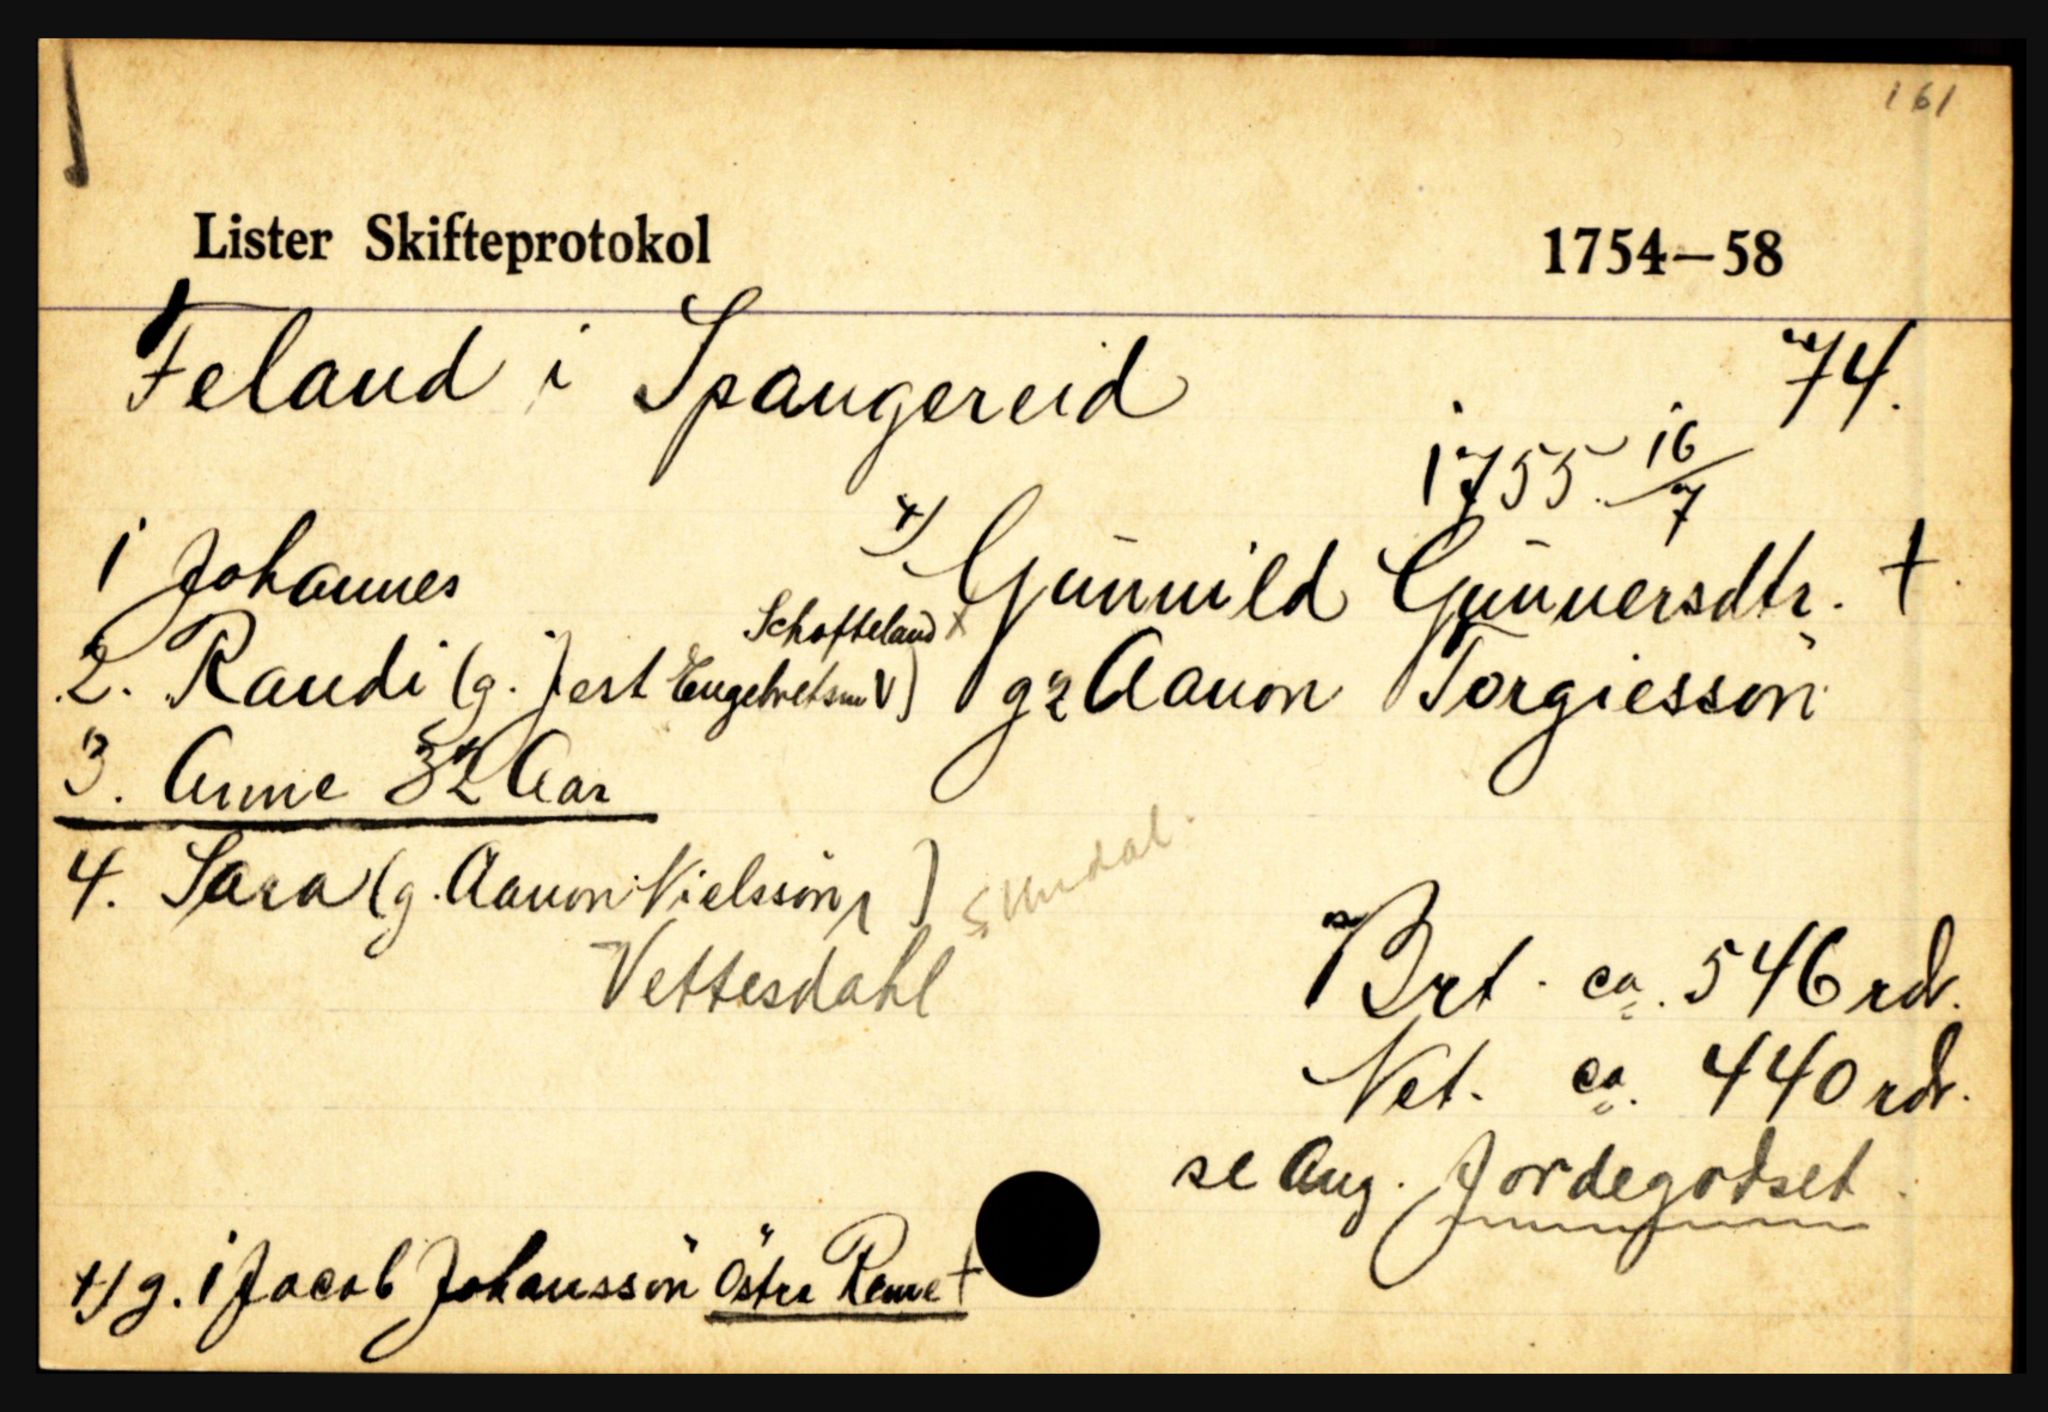 161
Lister Skifteprotokol 1754–58
Feland i Spangereid 74.
1755. 16/7
1 Johannes
x) Gunnild Gunnersdtr. †.
Schofteland x
2. Randi (g. Jest Engebretsøn V) g2 Aanon Torgiessön
3. Anne 32 Aar
4. Sara (g. Aanon Nielssön)
S. Undal.
Vettesdahl
Brt. ca. 546 rdr.
Net. ca. 440 rdr.
se Ang. Jordegodset.
x) g. 1 Jacob Johanssön Östre Reme †